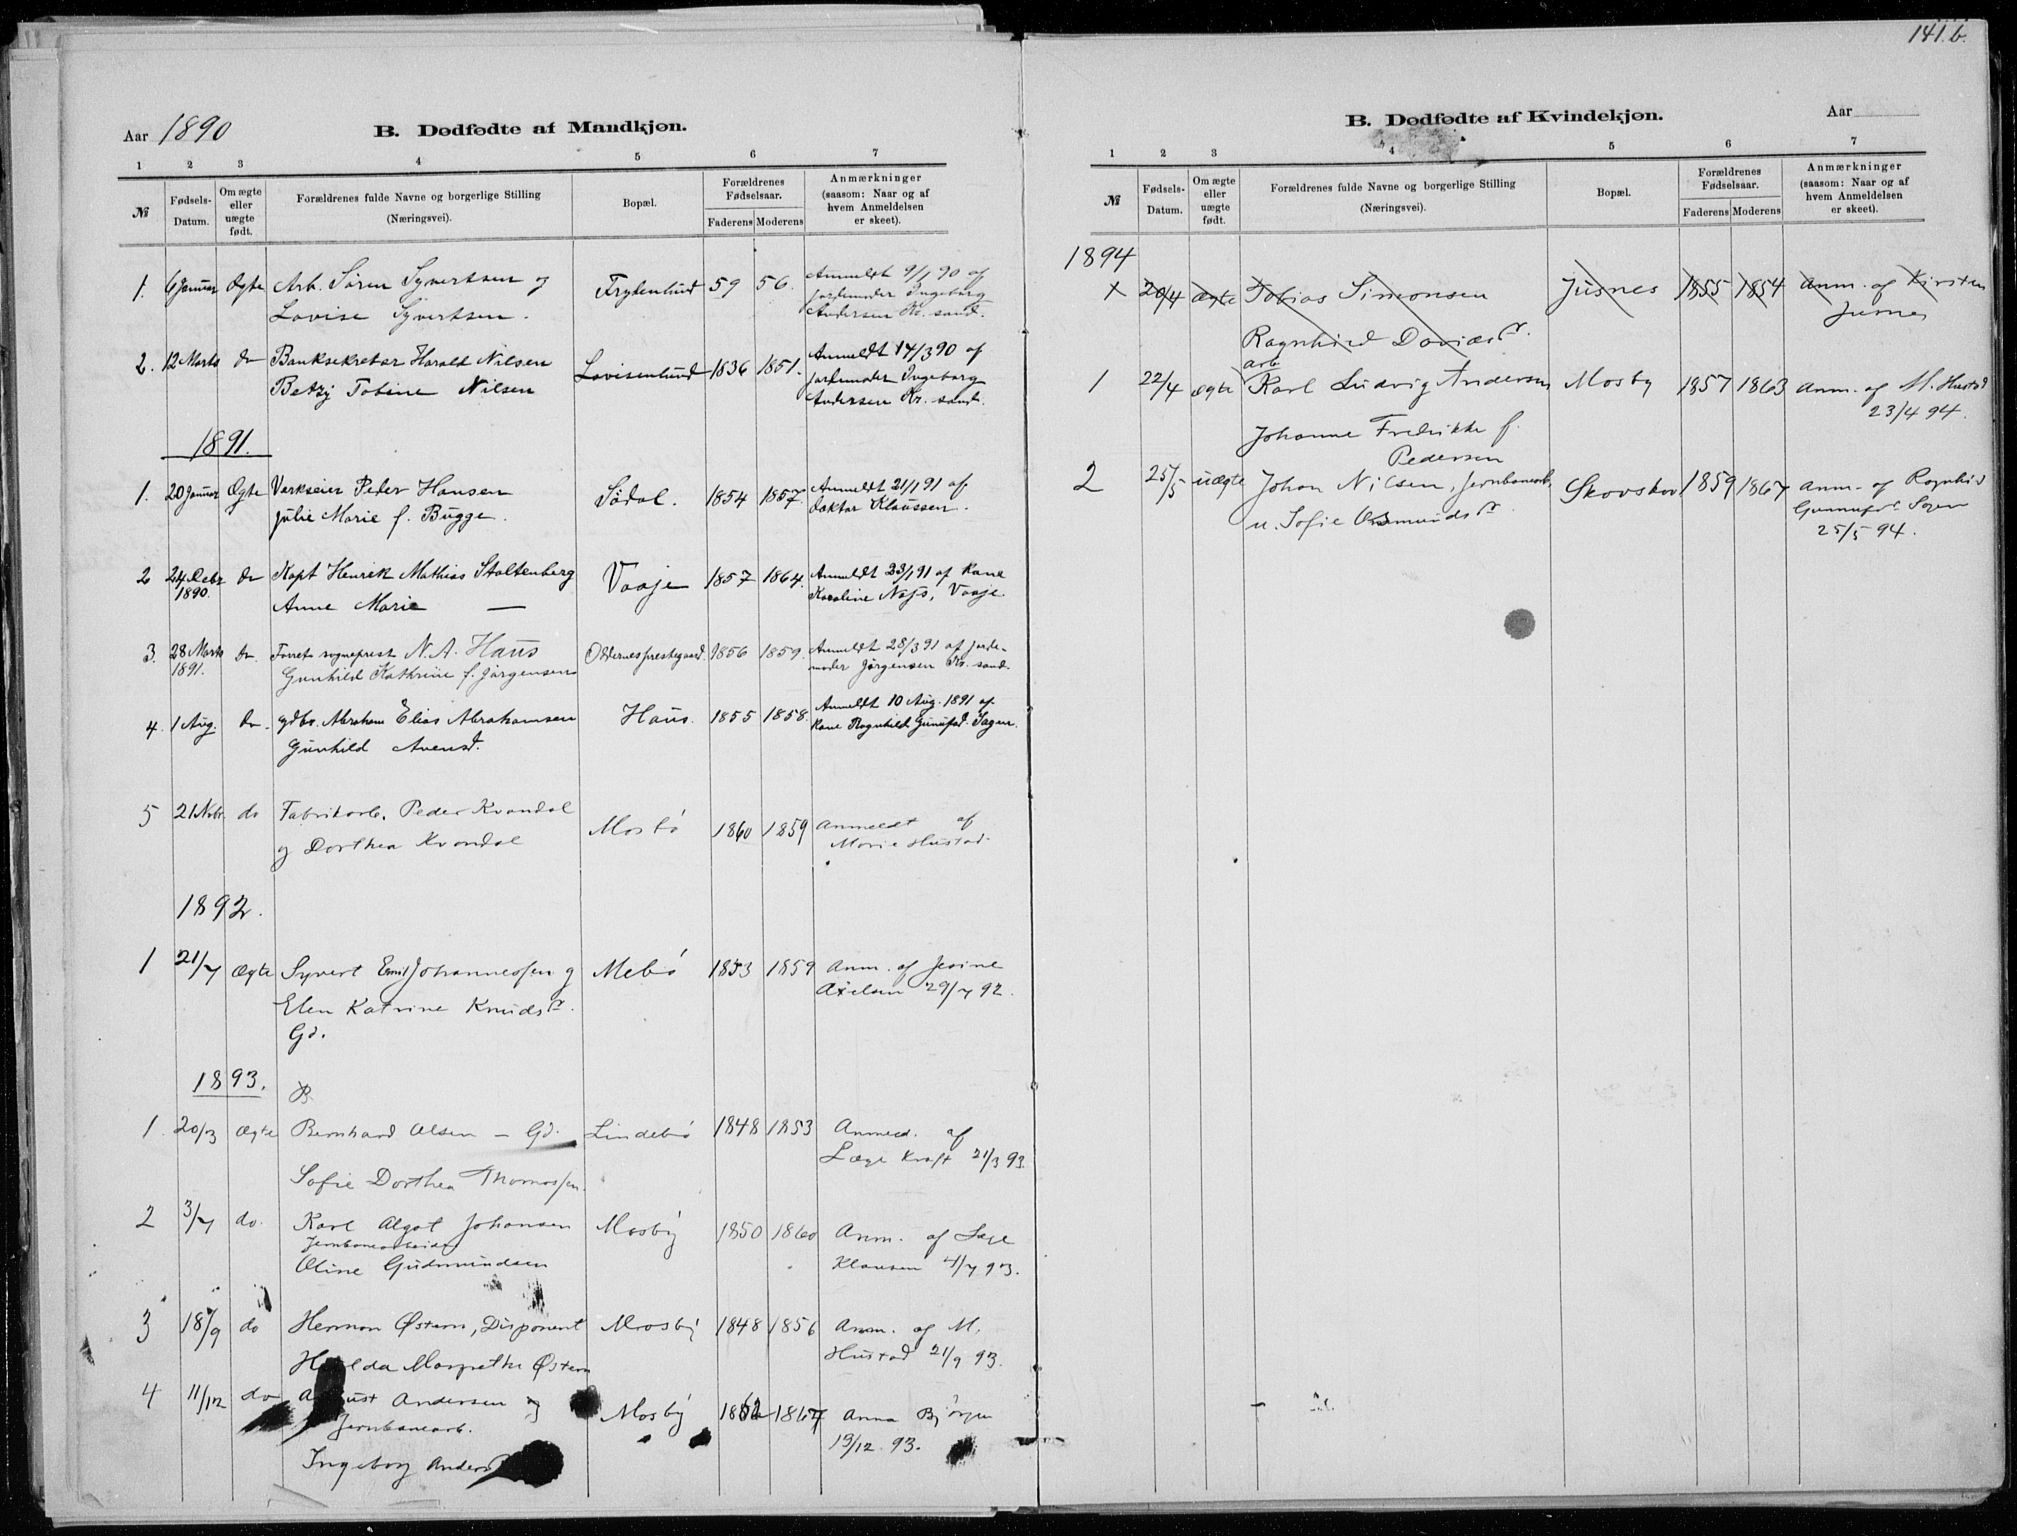 141.b.
Aar 1890
B. Dødfødte af Mandkjøn.
1 2 3 4 5 6 7
№ Fødsels-Datum. Om ægte eller uægte født. Forældrenes fulde Navne og borgerlige Stilling (Næringsvei). Bopæl. Forældrenes Fødselsaar. Faderens Moderens Anmærkninger (saasom: Naar og af hvem Anmeldelsen er skeet).
1. 6 Januar Ægte Arb. Søren Syvertsen og Frydenlund 59 56. Anmeldt 9/1 90 af
Lovise Syvertsen. jordemoder Ingeborg
Andersen Kr. sand.
2. 12 Marts do Banksekretær Harald Nilsen Lovisenlund 1836 1851. Anmeldt 14/3 90 af
Betzy Tobine Nilsen jordemoder Ingeborg
Andersen Kr. sand.
1891.
1. 20 Januar Ægte Værkseier Peder Hansen Sødal. 1854 1857. Anmeldt 21/1 91 af
Julie Marie f. Bugge. Doktor Klaussen.
2 24 Debr 1890. do Kapt Henrik Mathias Stoltenberg Vaaje 1857 1864. Anmeldt 23/1 91 af Kone
Anne Marie — Karoline Vaaje.
3. 28 Marts 1891. do. Forret. sogneprest N. A. Haus Oddernes prestegaard. 1856 1859. Anmeldt 28/3 91 af jorde-
Gunhild Kathrine f. Jørgensen moder Jørgensen Kr. sand.
4. 1 Aug. do. gdbr. Abraham Elias Abrahamsen Haus. 1855 1858. Anmeldt 10 Aug. 1891 af
Gunhild Avensd. Kone Ragnhild Gunufsd. Sagen.
5 21 Nvbr. do Fabrikarb. Peder Kvandal Mosbø 1860 1859 Anmeldt af
og Dorthea Kvandal Marie Hustad.
1892.
1 21/7 Ægte Syvert Emil Johannessen og Mebø 1853 1859 Anm. af Jesine
Elen Katrine Knudsdr. Axelsen 29/7 92.
Gd.
1893.
1. 20/3 Ægte Bernhard Olsen – Gd. Lindebø 1848 1853 Anmed. af
Sofie Dorthea Thomassen. Læge Kraft 21/3 93.
2 3/7 do. Karl Algot Johansen Mosby 1850 1860 Anm. af Læge
Jernbanearbeider
Oline Gudmundsen Klausen 4/7 93.
3 18/9 do Herman Østern, Disponent Mosby 1848 1856 Anm. af M.
Hulda Margrethe Østern Hustad 21/9 93.
4 11/12 do August Andersen og Mosby 1862 1867 Anna Bjørgen
Jernbanearb. 13/12 93.
Ingeborg Anders
B. Dødfødte af Kvindekjøn.
Aar
1 2 3 4 5 6 7
№ Fødsels-Datum. Om ægte eller uægte født. Forældrenes fulde Navne og borgerlige Stilling (Næringsvei). Bopæl. Forældrenes Fødselsaar. Faderens Moderens Anmærkninger (saasom: Naar og af hvem Anmeldelsen er skeet).
1894
1 20/4 ægte Tobias Simonsen Jusnes 1855 1854 Anm. af Kirsten
Ragnhild Daviasdr. Jusnes
arb
1 22/4 ægte Karl Ludvig Andersen Mosby 1857 1863 Anm. af M. Hustad
23/4 94.
Johanne Fredrikke f.
Pedersen
2 25/5 uægte Johan Nilsen, Jernbanearb. Skovskov 1859 1867 Anm. af Ragnhild
u. Sofie Osmundsdr. Gunnufsdr. Sagen
25/5 94.